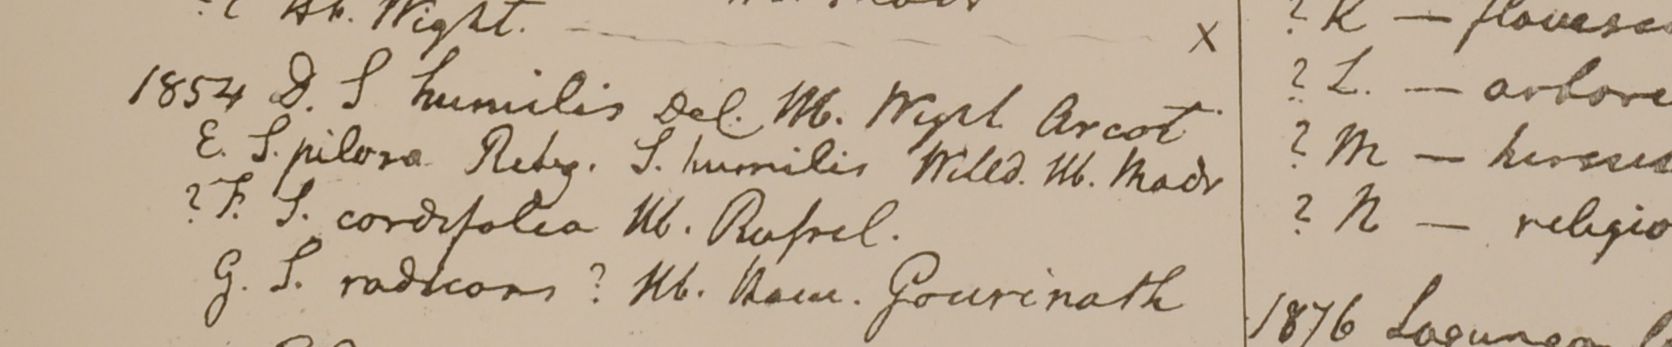 Hb. Wight. x
1854 D. S humilis Del. Hb. Wight Arcot
E. S. pilosa Retz. S. humilis Willd. Hb. Madr
? F. S. cordifolia Hb. Russel.
G. S. radicans ? Hb. Ham. Gourinath
? K —
? L. — arbore
? M —
? N — religio
1876 Lagunea